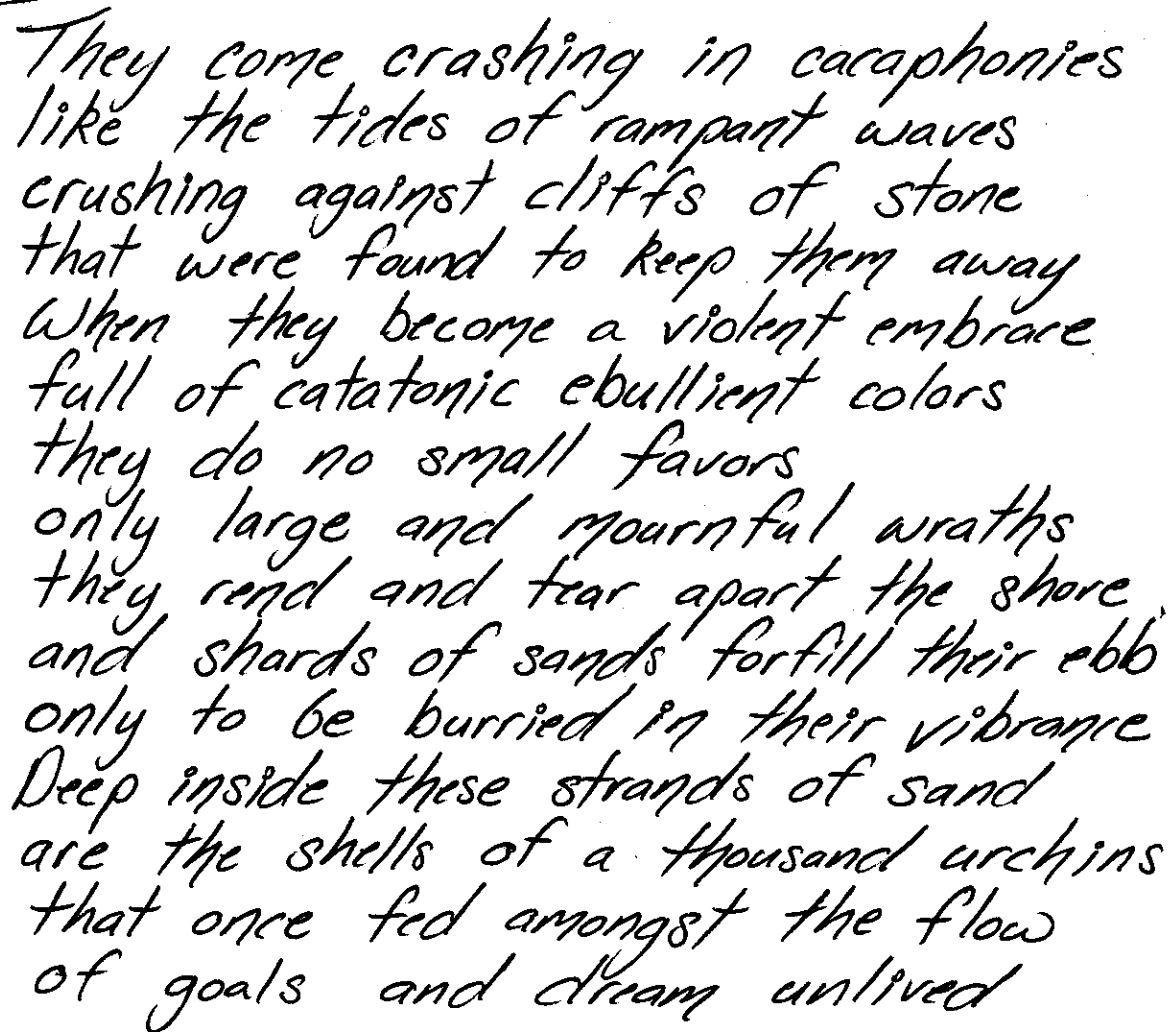 They come crashing in cacaphonies
like the tides of rampant waves
crushing against cliffs of stone
that were found to keep them away
When they become a violent embrace
full of catatonic ebullient colors
they do no small favors
only large and mournful wraths
they rend and tear apart the shore
and shards of sands forfill their ebb
only to be burried in their vibrance
Deep inside these strands of sand
are the shells of a thousand urchins
that once fed amongst the flow
of goals and dream unlived